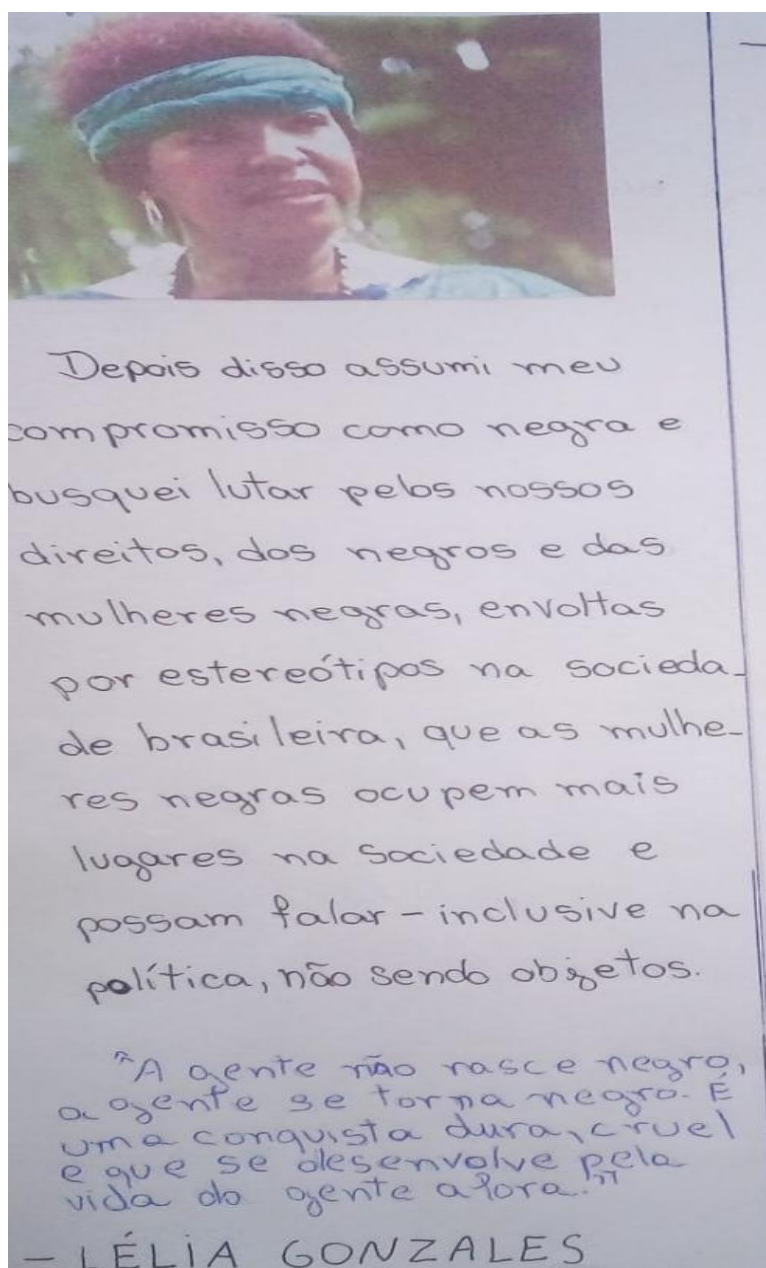 Depois disso assumi meu
compromisso como negra e
busquei lutar pelos nossos
direitos, dos negros e das
mulheres negras, envoltas
por estereótipos na socieda-
de brasileira, que as mulhe-
res negras ocupem mais
lugares na sociedade e
possam falar - inclusive na
política, não sendo objetos.
"A gente não nasce negro,
a gente se torna negro. É
uma conquista dura, cruel
e que se desenvolve pela
vida da gente afora."
- LÉLIA GONZALES